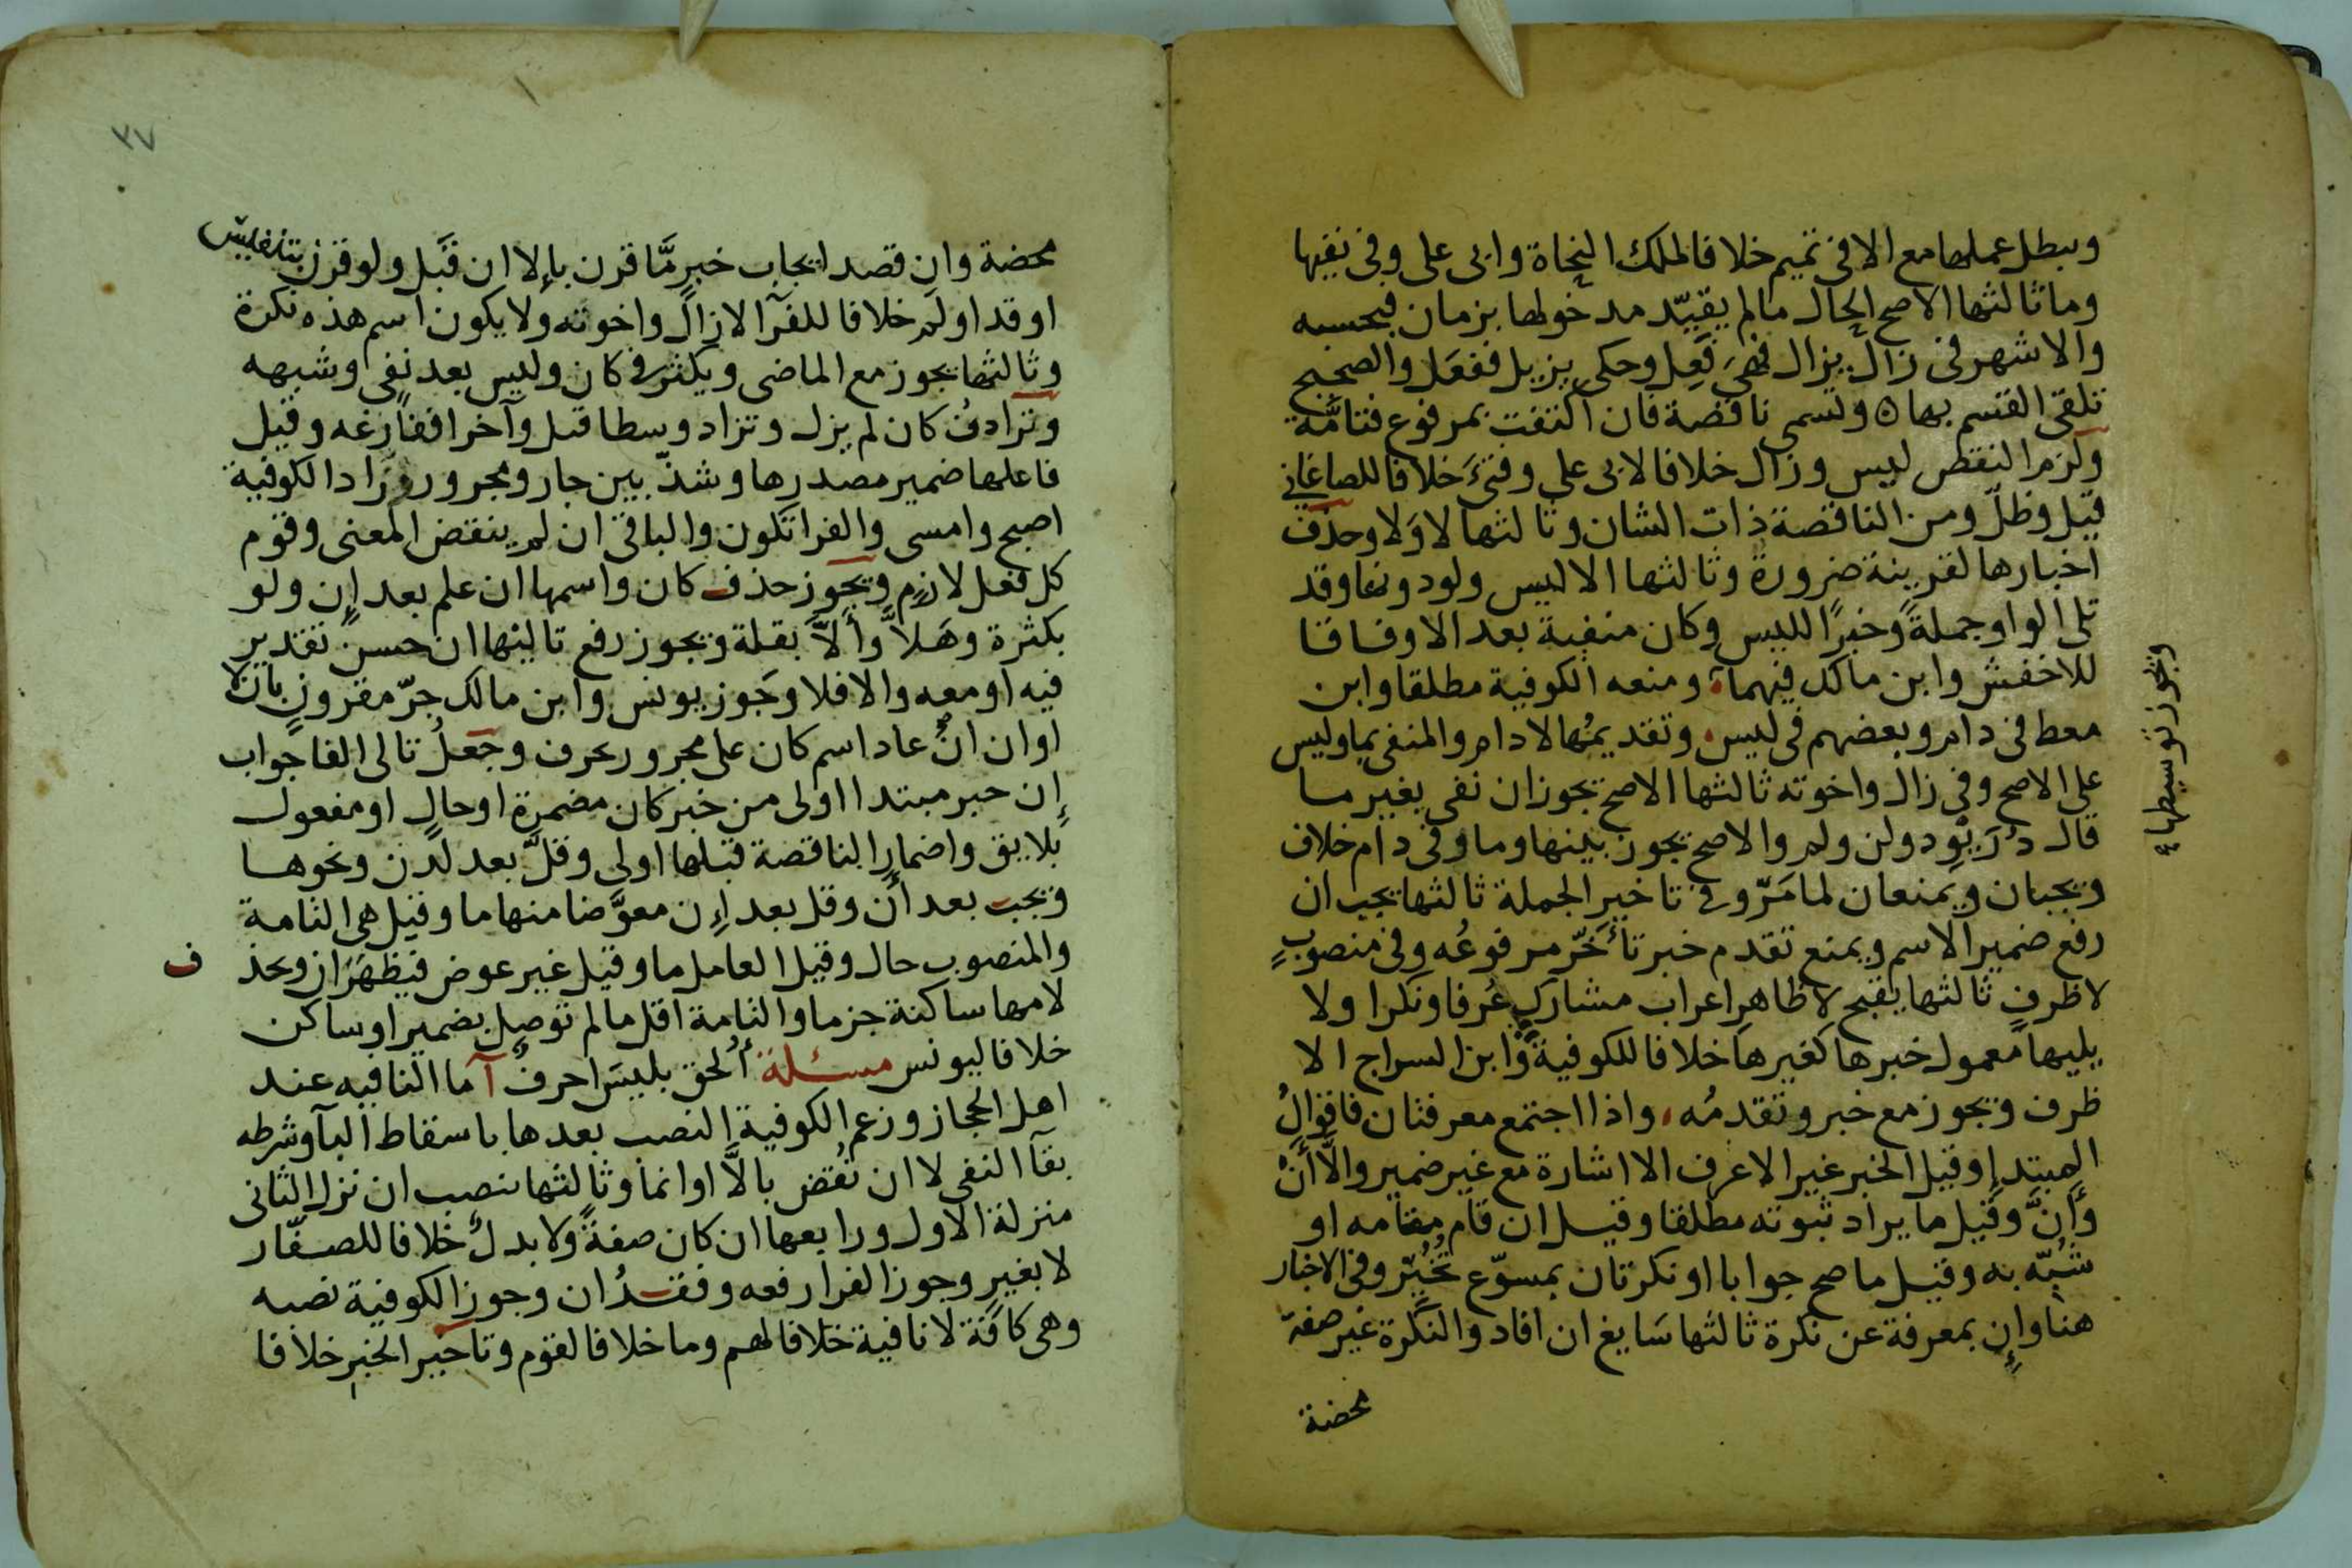 ويبطل عملها مع الا في تميم خلافا لملك النحاة وابى على وفى نفيها
وما ثالثها الاصح الحال ما لم يقيّد مدخولها بزمان فبحسبه
والاشهر فى زال يزال فهى فَعِل وحكى يزيل ففعَل والصحيح
تلقى القسم بها ٥ وتسمى ناقصة فان اكتفت بمرفوع فتامّة
ولزم النقص ليس وزال خلافا لابى على وفتئَ خلافا للصاغانى
قيل وظلّ ومن الناقصة ذات الشان وثالثها لا وَلا وحذف
اخبارها لقرينة ضرورة وثالثها الا ليس ولو دونها وقد
تلى الواو جملةً وخبرًا لليس وكان منفية بعد الا وفاقا
للاخفش وابن مالك فيهما ومنعه الكوفية مطلقا وابن
معط فى دام وبعضهم فى ليس وتقديمُها لا دام والمنفى بما وليس
على الاصح وفى زال واخوته ثالثها الاصح يجوز ان نفى بغير ما
قال دُرَيْوِد ولن ولم والاصح يجوز بينها وما وفى دام خلاف
ويجبان ويمنعان لما مَرّ وفى تاخير الجملة ثالثها يجب ان
رفع ضمير الاسم ويمنع تقدم خبر تأخّر مرفوعُه وفى منصوبٍ
لا ظرفٍ ثالثها يقبح لا ظاهرِ اعراب مشاركٍ عُرفا ونكرا ولا
يليها معمول خبرها كغيرها خلافا للكوفية وابن السراج الا
ظرف ويجوز مع خبر وتقدمُه واذا اجتمع معرفتان فاقوالُ
المبتدا وقيل الخبر غير الاعرف الا اشارة مع غير ضمير والّا أنْ
وأنَّ وقيل ما يراد ثبوته مطلقا وقيل ان قام مقامه او
شُبّه به وقيل ما صح جوابا او نكرتان بمسوّغ تُخُيّر وفى الاخبار
هنا وإن بمعرفة عن نكرة ثالثها سايغ ان افاد والنكرة غير صفة
محضة
ويجوز توسيطها
٣٧
محضة وان قصد ايجاب خبر مَّا قرن بإلا ان قَبَل ولو قرن بتنفيس
او قد او لم خلافا للفرآ لا زال واخوته ولا يكون اسم هذه نكرة
وثالثها يجوز مع الماضى ويكثر فى كان وليس بعد نفى وشبهه
وترادف كان لم يزل وتزاد وسطا قيل وآخرا ففارغه وقيل
فاعلها ضمير مصدرها وشذّ بين جار ومجرور وزاد الكوفية
اصبح وامسى والفرا تكون والباقى ان لم ينقض المعنى وقوم
كل فعل لازم ويجوز حذف كان واسمها ان علم بعد إن ولو
بكثرة وهَلاَّ وأَلاَّ بقلة ويجوز رفع تاليها ان حسن تقدير
فيه او معه والا فلا وجَوز يونس وابن مالك جرّ مقرونٍ بان لا
او ان ان عاد اسم كان على مجرور بحرف وجعلُ تالى الفا جواب
إن خبر مبتدا اولى من خبر كان مضمرة او حالٍ او مفعول
بلايق واضمار الناقصة قبلها اولى وقلّ بعد لدن ونحوها
ويجب بعد أن وقل بعد إن معوَّضا منها ما وقيل هى التامة
والمنصوب حال وقيل العامل ما وقيل غير عوض فيظهرَان ويحذف
لامها ساكنة جزما والتامة اقل ما لم توصل بضمير او ساكن
خلافا ليونس مسئلة أُلحق بليسَ احرفٌ آ ما النافيه عند
اهل الحجاز وزعم الكوفية النصب بعدها باسقاط البآ وشرطه
بقآ النفى لا ان نُقض بالاَّ او انما وثالثها ينصب ان نزل الثانى
منزلة الاول ورابعها ان كان صفةً ولا بدلٌ خلافا للصفّار
لا بغيرٍ وجوز الفرا رفعه وفقدُ ان وجوز الكوفية نصبه
وهى كافّة لا نافية خلافا لهم وما خلافا لقوم وتاخير الخبر خلافا